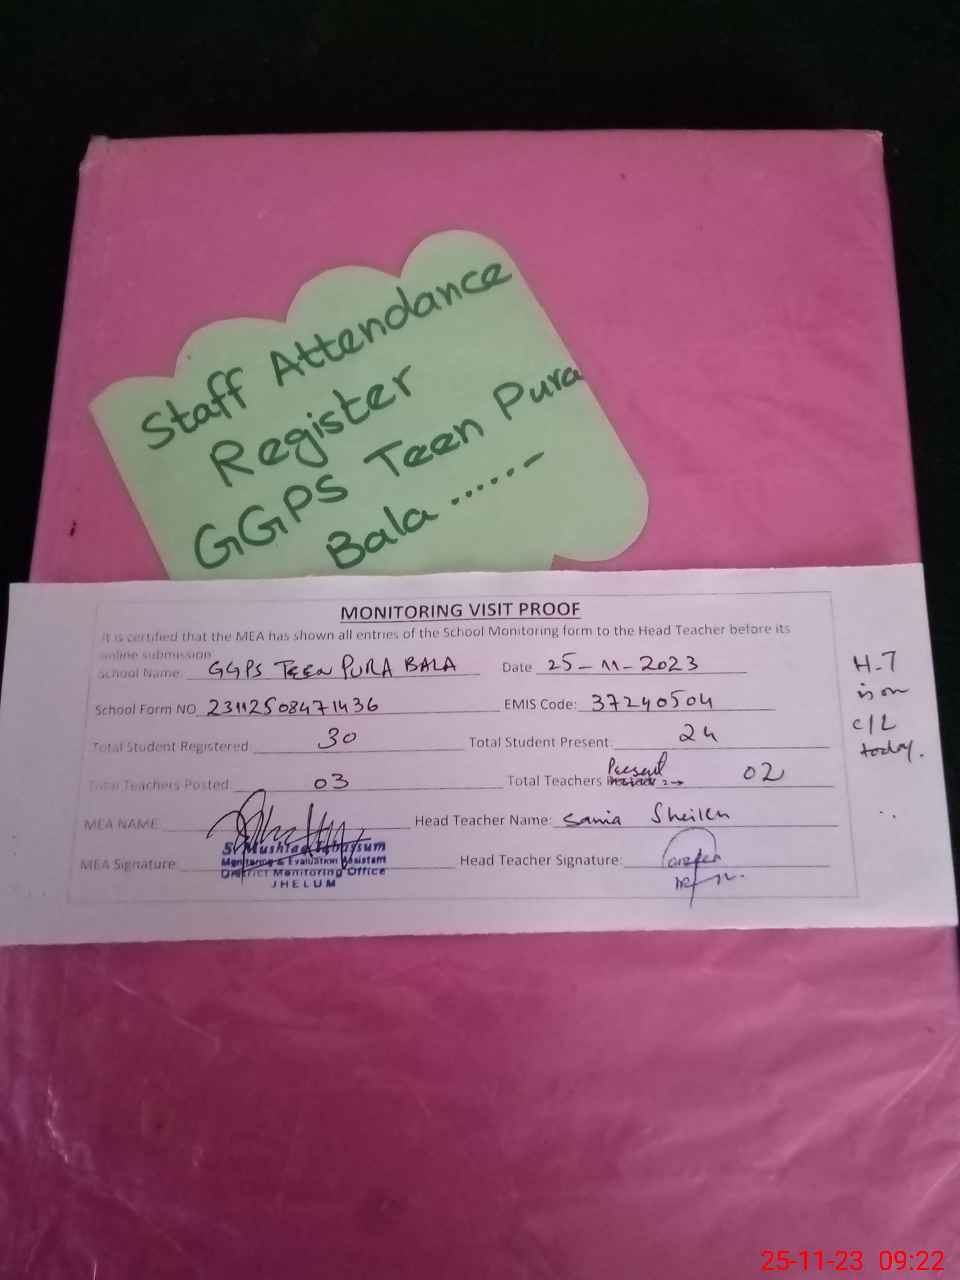 Staff Attendance
Register
GGPS Teen Pura
Bala ......
MONITORING VISIT PROOF
It is certified that the MEA has shown all entries of the School Monitoring form to the Head Teacher before its
online submission
School Name: GGPS TEEN PURA BALA Date 25-11-2023
School Form NO 23112508471436 EMIS Code: 37240504
Total Student Registered: 30 Total Student Present: 24
Total Teachers Posted: 03 Total Teachers Present 02
MEA NAME: Head Teacher Name: Samia Sheikh
MEA Signature: Head Teacher Signature:
S. Mushtaq
Monitoring & Evaluation Assistant
District Monitoring Office
JHELUM
H.T
is on
c/L
today.
25-11-23 09:22